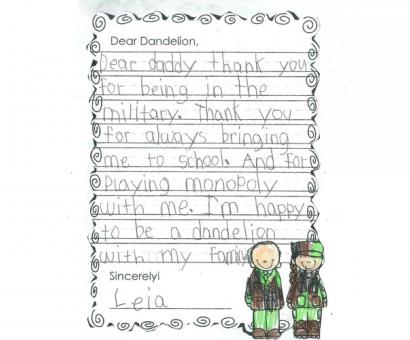 Dear Dandelion,
Dear daddy thank you
for being in the
military. Thank you
for always bringing
me to school. And for
Playing monopoly
with me. I'm happy
to be a dandelion
with my family
Sincerelyi
Leia